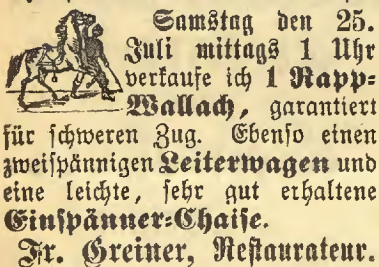 Samstag den 25.
Juli mittags 1 Uhr
verkaufe ich 1 Rapp-
Wallach, garantiert
für schweren Zug. Ebenso einen
zweispännigen Leiterwagen und
eine leichte, sehr gut erhaltene
Einspänner-Chaise.
Fr. Greiner, Restaurateur.